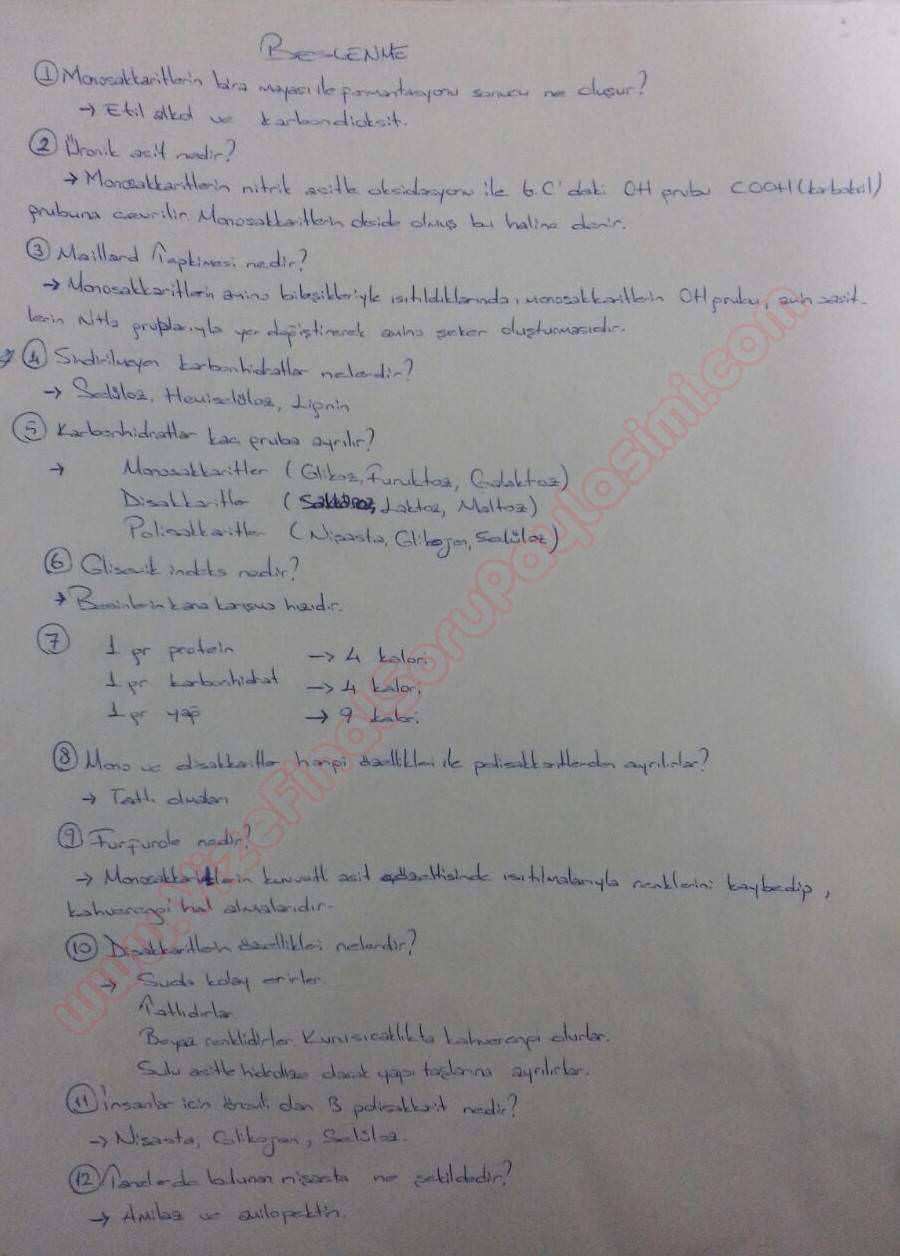 BESLENME
① Monosakkaritlerin bira mayası ile fermantasyonu sonucu ne oluşur?
→ Etil alkol ve karbondioksit.
② Üronik asit nedir?
→ Monosakkaritlerin nitrik asitle oksidasyonu ile 6.C'daki OH grubu COOH (karboksil)
grubuna çevrilir. Monosakkaritlerin okside olmuş bu haline denir.
③ Maillard Tepkimesi nedir?
→ Monosakkaritlerin amino bileşikleriyle ısıtıldıklarında, monosakkaritlerin OH grubu, amin asit-
lerin NH₂ gruplarıyla yer değiştirerek amino şeker oluşturmasıdır.
④ Sindirilmeyen karbonhidratlar nelerdir?
→ Selüloz, Hemiselüloz, Lignin
⑤ Karbonhidratlar kaç gruba ayrılır?
→ Monosakkaritler (Glikoz, Furuktoz, Galaktoz)
Disakkaritler (Sakkaroz, Laktoz, Maltoz)
Polisakkaritler (Nişasta, Glikojen, Selüloz)
⑥ Glisemik indeks nedir?
→ Besinlerin kana karışma hızıdır.
⑦ 1 gr protein → 4 kalori
1 gr karbonhidrat → 4 kalori
1 gr yağ → 9 kalori
⑧ Mono ve disakkaritler hangi özellikleri ile polisakkaritlerden ayrılırlar?
→ Tatlı olmaları
⑨ Furfurole nedir?
→ Monosakkaritlerin kuvvetli asit çözeltisinde ısıtılmalarıyla renklerini kaybedip,
kahverengi hal almalarıdır.
⑩ Disakkaritlerin özellikleri nelerdir?
→ Suda kolay erirler.
Tatlıdırlar
Beyaz renklidirler Kuru sıcaklıkta kahverengi olurlar.
Sulu asitle hidrolize olarak yapı taşlarına ayrılırlar.
⑪ İnsanlar için önemli olan 3 polisakkarit nedir?
→ Nişasta, Glikojen, Selüloz.
⑫ Tanelerde bulunan nişasta ne şekildedir?
→ Amiloz ve amilopektin.
www.VizeFinalSoruPaylasimi.com